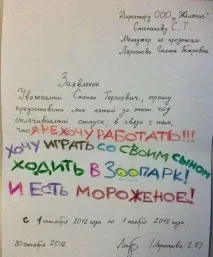 Директору ООО „Желание"
Степанову С. Т.
Менеджер по продажам
Ларионова Галина Петровна
Заявление
Уважаемый Степан Тарасович, прошу
предоставить мне за этот год
оплачиваемый отпуск, в связи с тем,
что Я НЕ ХОЧУ РАБОТАТЬ!!!
ХОЧУ ИГРАТЬ СО СВОИМ СЫНОМ
ХОДИТЬ В ЗООПАРК!
И ЕСТЬ МОРОЖЕНОЕ!
с 4 октября 2012 года по 1 ноября 2012 года
2012